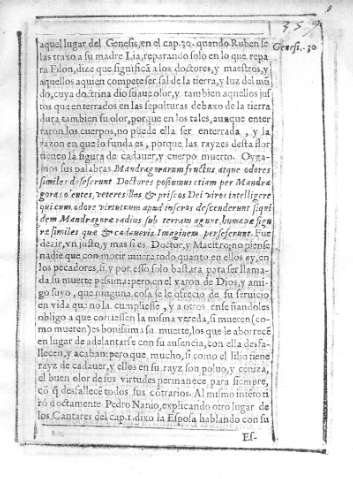 aquel lugar del Genesis, en el cap. 30. quando Ruben se
las traxo a su madre Lia, reparando solo en lo que repa
ra Filon, dize que significã a los doctores, y maestros, y
aquellos a quien compete ser sal de la tierra, y luz del mũ
do, cuya doctrina dio suaue olor, y tambien aquellos jus
tos que enterrados en las sepulturas debaxo de la tierra
dura tambien su olor, porque en los tales, aunque enter
raron los cuerpos, no puede ella ser enterrada, y la
razon en que lo funda es, porque las rayzes desta flor
tienen la figura de cadauer, y cuerpo muerto. Oyga-
mos sus palabras Mandragorarum fructus atque odores
similes deseferunt Doctores possumus etiam per Mandra
goras olentes, veteres illos & priscos Dei viros intelligere
qui cum odore virtutum apud inferos descenderunt siqui
dem Mandragoræ radius sub terram agunt, humanæ figu
re similes que & cadaueris Imaginem perseferunt. Fue
dezir, vn justo, y mas si es Doctor, y Maestro, no piense
nadie que con morir muere todo quanto en ellos ay, en
los pecadores, si, y por esso solo bastara para ser llama-
da su muerte pesima; pero en el varon de Dios, y ami-
go suyo, que ninguna cosa se le ofrecio de su seruicio
en vida que no la cumpliesse, y a otros enseñandoles
obligo a que corriessen la misma vereda, si mueren (co-
mo mueren) es bonissima su muerte, los que le aborrecẽ
en lugar de adelantarse con su ausencia, con ella desfa-
llecen, y acaban: pero que mucho, si como el lilio tiene
rayz de cadauer, y ellos en su rayz son poluo, y ceniza,
el buen olor de sus virtudes permanece para siempre,
cõ q̃ desfallece todo los cõtrarios. Al mismo intẽto ti
rò doctamente Pedro Nanio, explicando otro lugar de
los Cantares del cap. 1. dixo la Esposa hablando con su
Es-
Genesi. 30